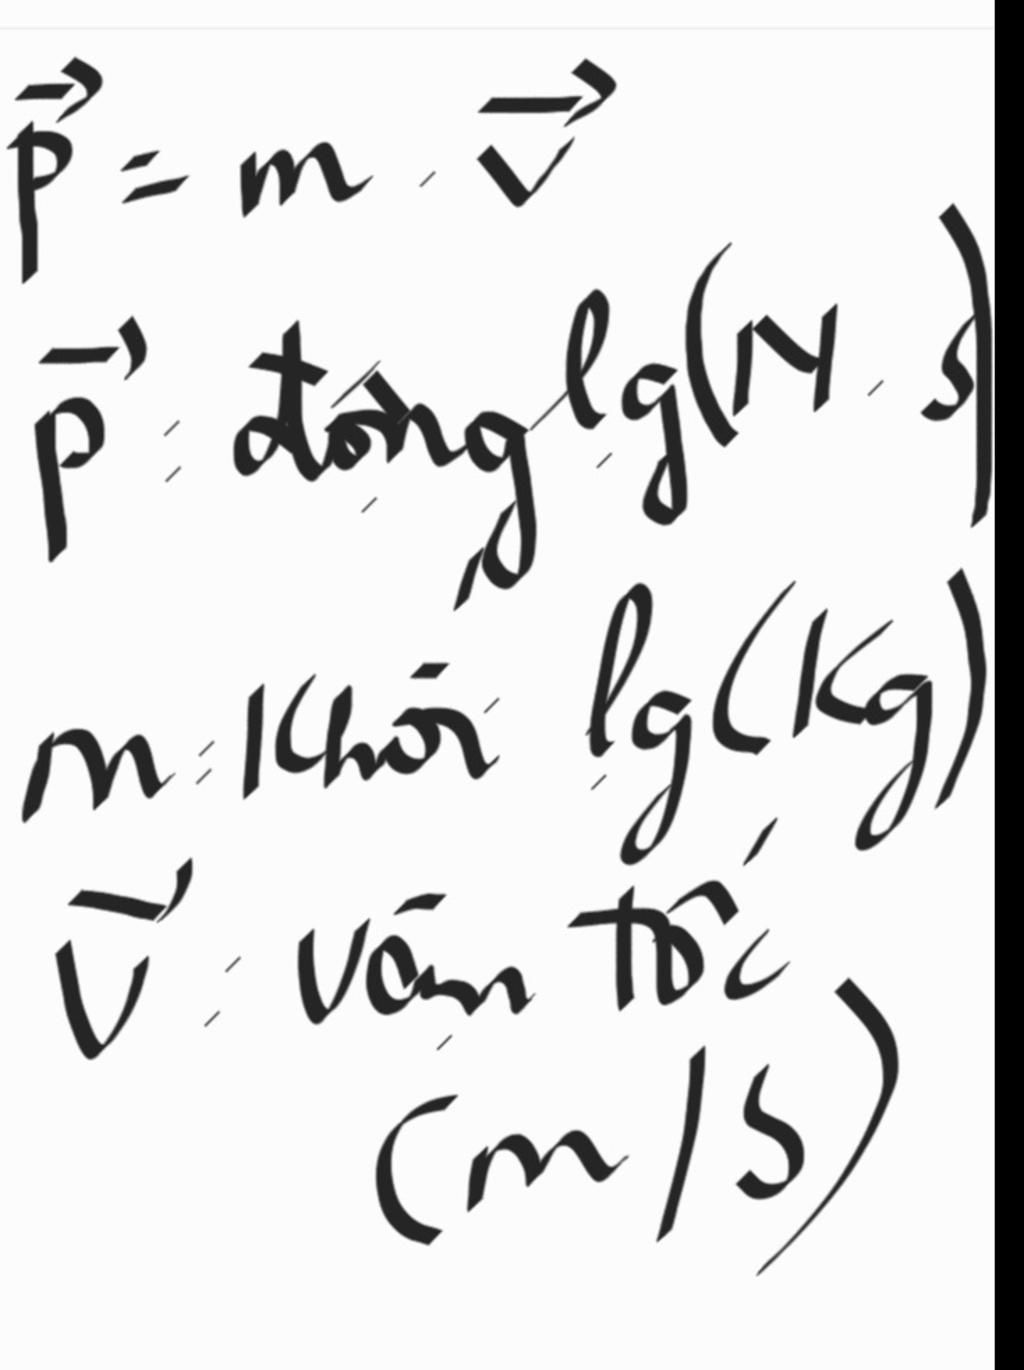 p⃗ = m . v⃗
p⃗ : động lg (N . s)
m : Khối lg (Kg)
v⃗ : vận tốc
(m/s)